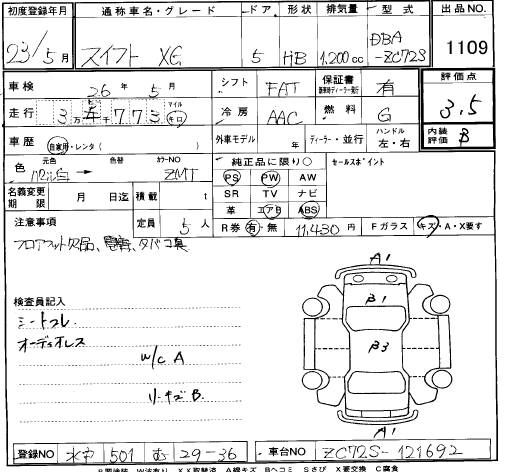 初度登録年月 通称車名・グレード ドア 形状 排気量 型式 出品NO.
23/5月 スイフト XG 5 HB 1,200cc DBA-ZC72S 1109
車検 26年 5月 シフト FAT 保証書 有 評価点
走行 3万 千773 マイル キロ 冷房 AAC 燃料 G 3.5
車歴 自家用・レンタ( ) 外車モデル 年 ディーラー・並行 ハンドル 左・右 内装評価 B
色 元色 パール白 → 色替 カラーNO ZMT 純正品に限り○ セールスポイント
PS PW AW
名義変更期限 月 日迄 積載 t SR TV ナビ
革 エアB ABS
注意事項 定員 5人 R券 有・無 11,430円 Fガラス キズ・A・X要す
フロアマット欠品、 タバコ臭
A1
検査員記入 B1
シートスレ
オーディオレス B3
W/C A
リーキズ B
A1
登録NO 水戸 501 む 29-36 車台NO ZC72S-121692
P要塗装 W波有り XX取替済 A線キズ Bヘコミ Sさび X要交換 C腐食